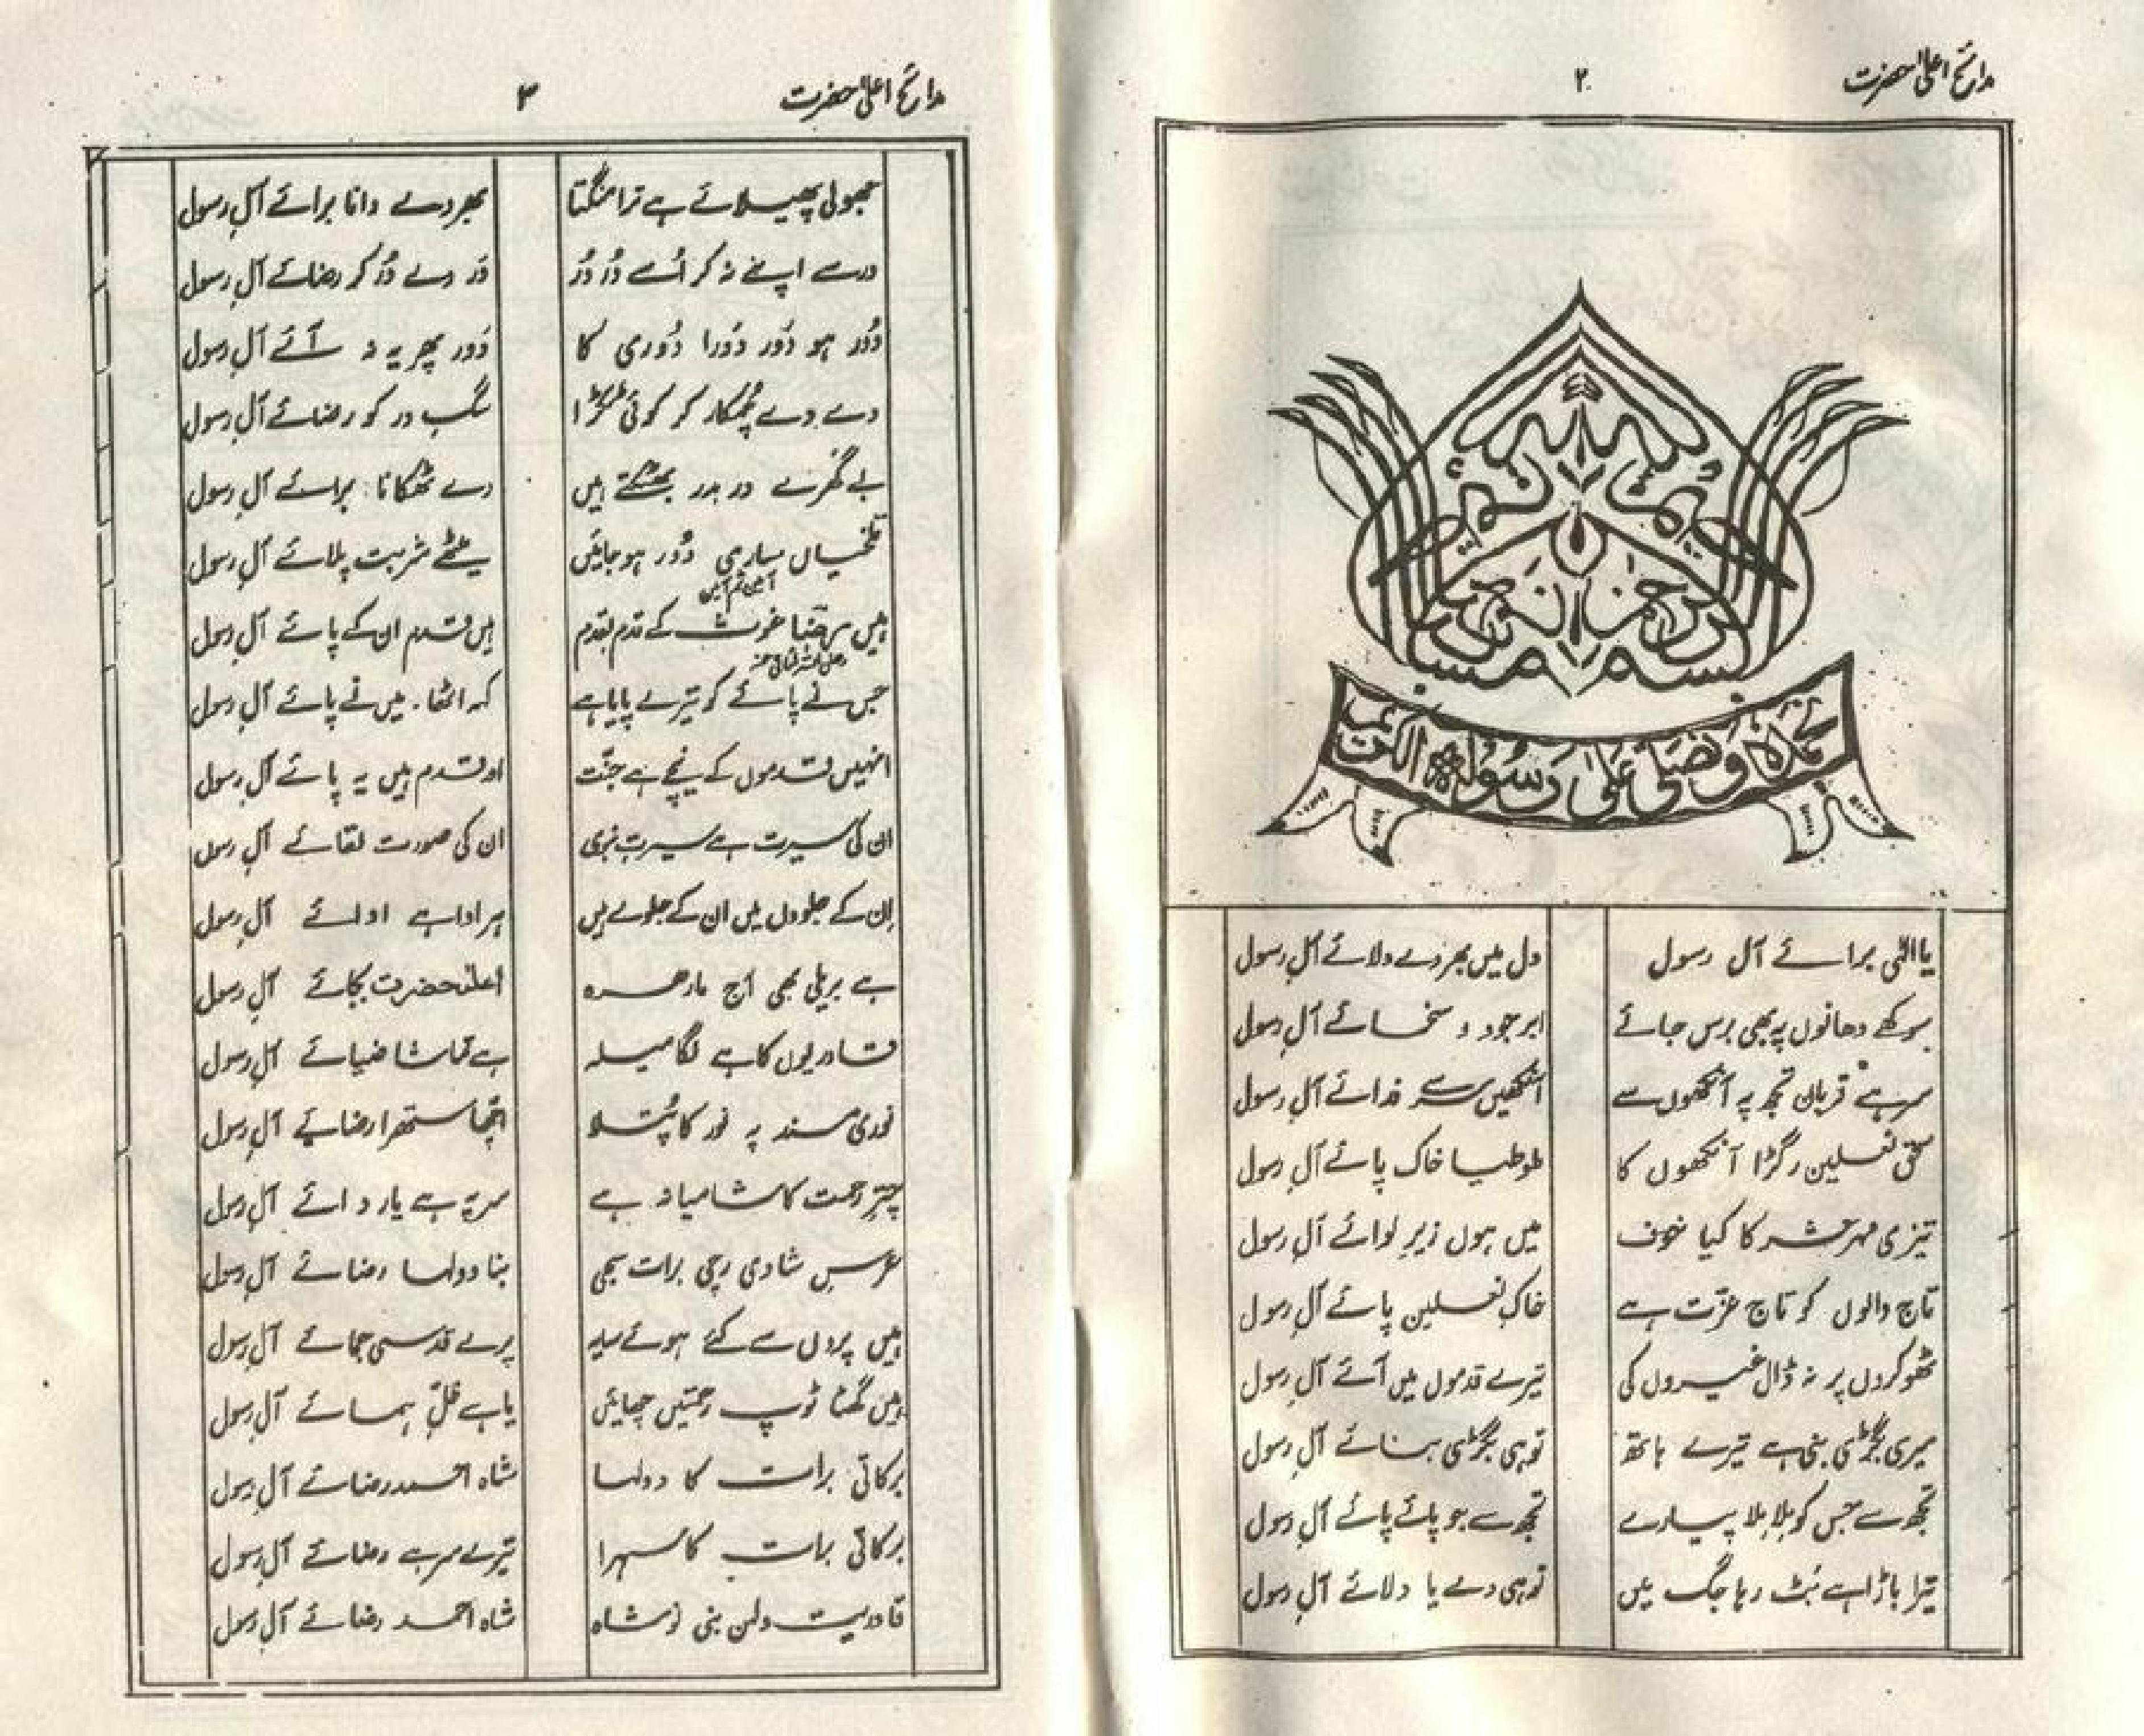 مدائح اعلیٰحضرت
۲
بسم اللہ الرحمن الرحیم
نحمدہ ونصلی علیٰ رسولہ الکریم
یا الٰہی برائے آلِ رسول دل میں بھر دے ولائے آلِ رسول
سوکھے دھانوں پہ بھی برس جائے ابر جود و سخائے آلِ رسول
سر ہے قربان تجھ پہ آنکھوں سے آنکھیں سر سے فدائے آلِ رسول
نعلین رگڑا آنکھوں کا طوطیا خاک پائے آلِ رسول
تیزی مہر حشر کا کیا خوف میں ہوں زیرِ لوائے آلِ رسول
تاج والوں کو تاج عزّت ہے خاکِ نعلین پائے آلِ رسول
ٹھوکروں پر نہ ڈال غیروں کی تیرے قدموں میں آئے آلِ رسول
میری بگڑی بنی ہے تیرے ہاتھ تو ہی بگڑی بنائے آلِ رسول
تجھ سے جس کو ملا ملا پیارے تجھ سے جو پائے پائے آلِ رسول
تیرا باڑا ہے بٹ رہا جگ میں تو ہی دے یا دلائے آلِ رسول
مدائح اعلیٰحضرت
۳
جھولی پھیلائے ہے ترا منگتا بھر دے داتا برائے آلِ رسول
در سے اپنے نہ کر اُسے دُر دُر دَر دے دُر کر رضائے آلِ رسول
دُور ہو دَور دَورا دُوری کا دَور پھر یہ نہ آئے آلِ رسول
دے دے چُمکار کر کوئی ٹکڑا سگ در کو رضائے آلِ رسول
بے گھرے در بدر بھٹکتے ہیں دے ٹھکانا برائے آلِ رسول
تلخیاں ساری دُور ہو جائیں میٹھے شربت پلائے آلِ رسول
ہیں رضا غوث کے قدم بقدم ہیں قدم ان کے پائے آلِ رسول
جس نے پائے کو تیرے پایا ہے کہہ اٹھا۔ میں نے پائے آلِ رسول
انھیں قدموں کے نیچے ہے جنّت او قدم ہیں یہ پائے آلِ رسول
ان کی سیرت ہے سیرتِ نبوی ان کی صورت لقائے آلِ رسول
اِن کے جلووں میں ان کے جلوے ہیں ہر ادا ہے ادائے آلِ رسول
ہے بریلی بھی آج مارہرہ اعلیٰحضرت بجائے آلِ رسول
قادریوں کا ہے لگا میلہ ہے تماشا ضیائے آلِ رسول
نوری مسند پہ نور کا پُتلا اچّھا ستھرا رضائے آلِ رسول
چترِ رحمت کا شامیانہ ہے سر پہ ہے یا ردائے آلِ رسول
عرسِ شادی رچی برات سجی بنا دولہا رضائے آلِ رسول
ہیں پروں سے کئے ہوئے سایہ پرے قدسی جمائے آلِ رسول
ہیں گھٹا ٹوپ رحمتیں چھائیں یا ہے ظلِّ ہمائے آلِ رسول
برکاتی برات کا دولہا شاہ احمد رضائے آلِ رسول
برکاتی برات کا سہرا تیرے سر ہے رضائے آلِ رسول
قادریت دلہن بنی نوشاہ شاہ احمد رضائے آلِ رسول